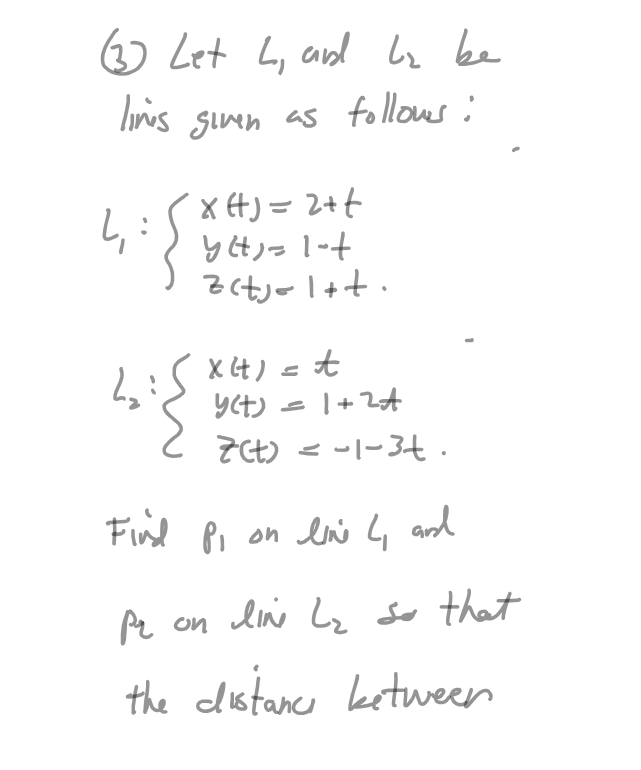 ③ Let L₁ and L₂ be
lines given as follows:
L₁: { x(t) = 2+t
y(t) = 1-t
z(t) = 1+t.
L₂: { x(t) = t
y(t) = 1+2t
z(t) = -1-3t.
Find P₁ on line L₁ and
P₂ on line L₂ so that
the distance between